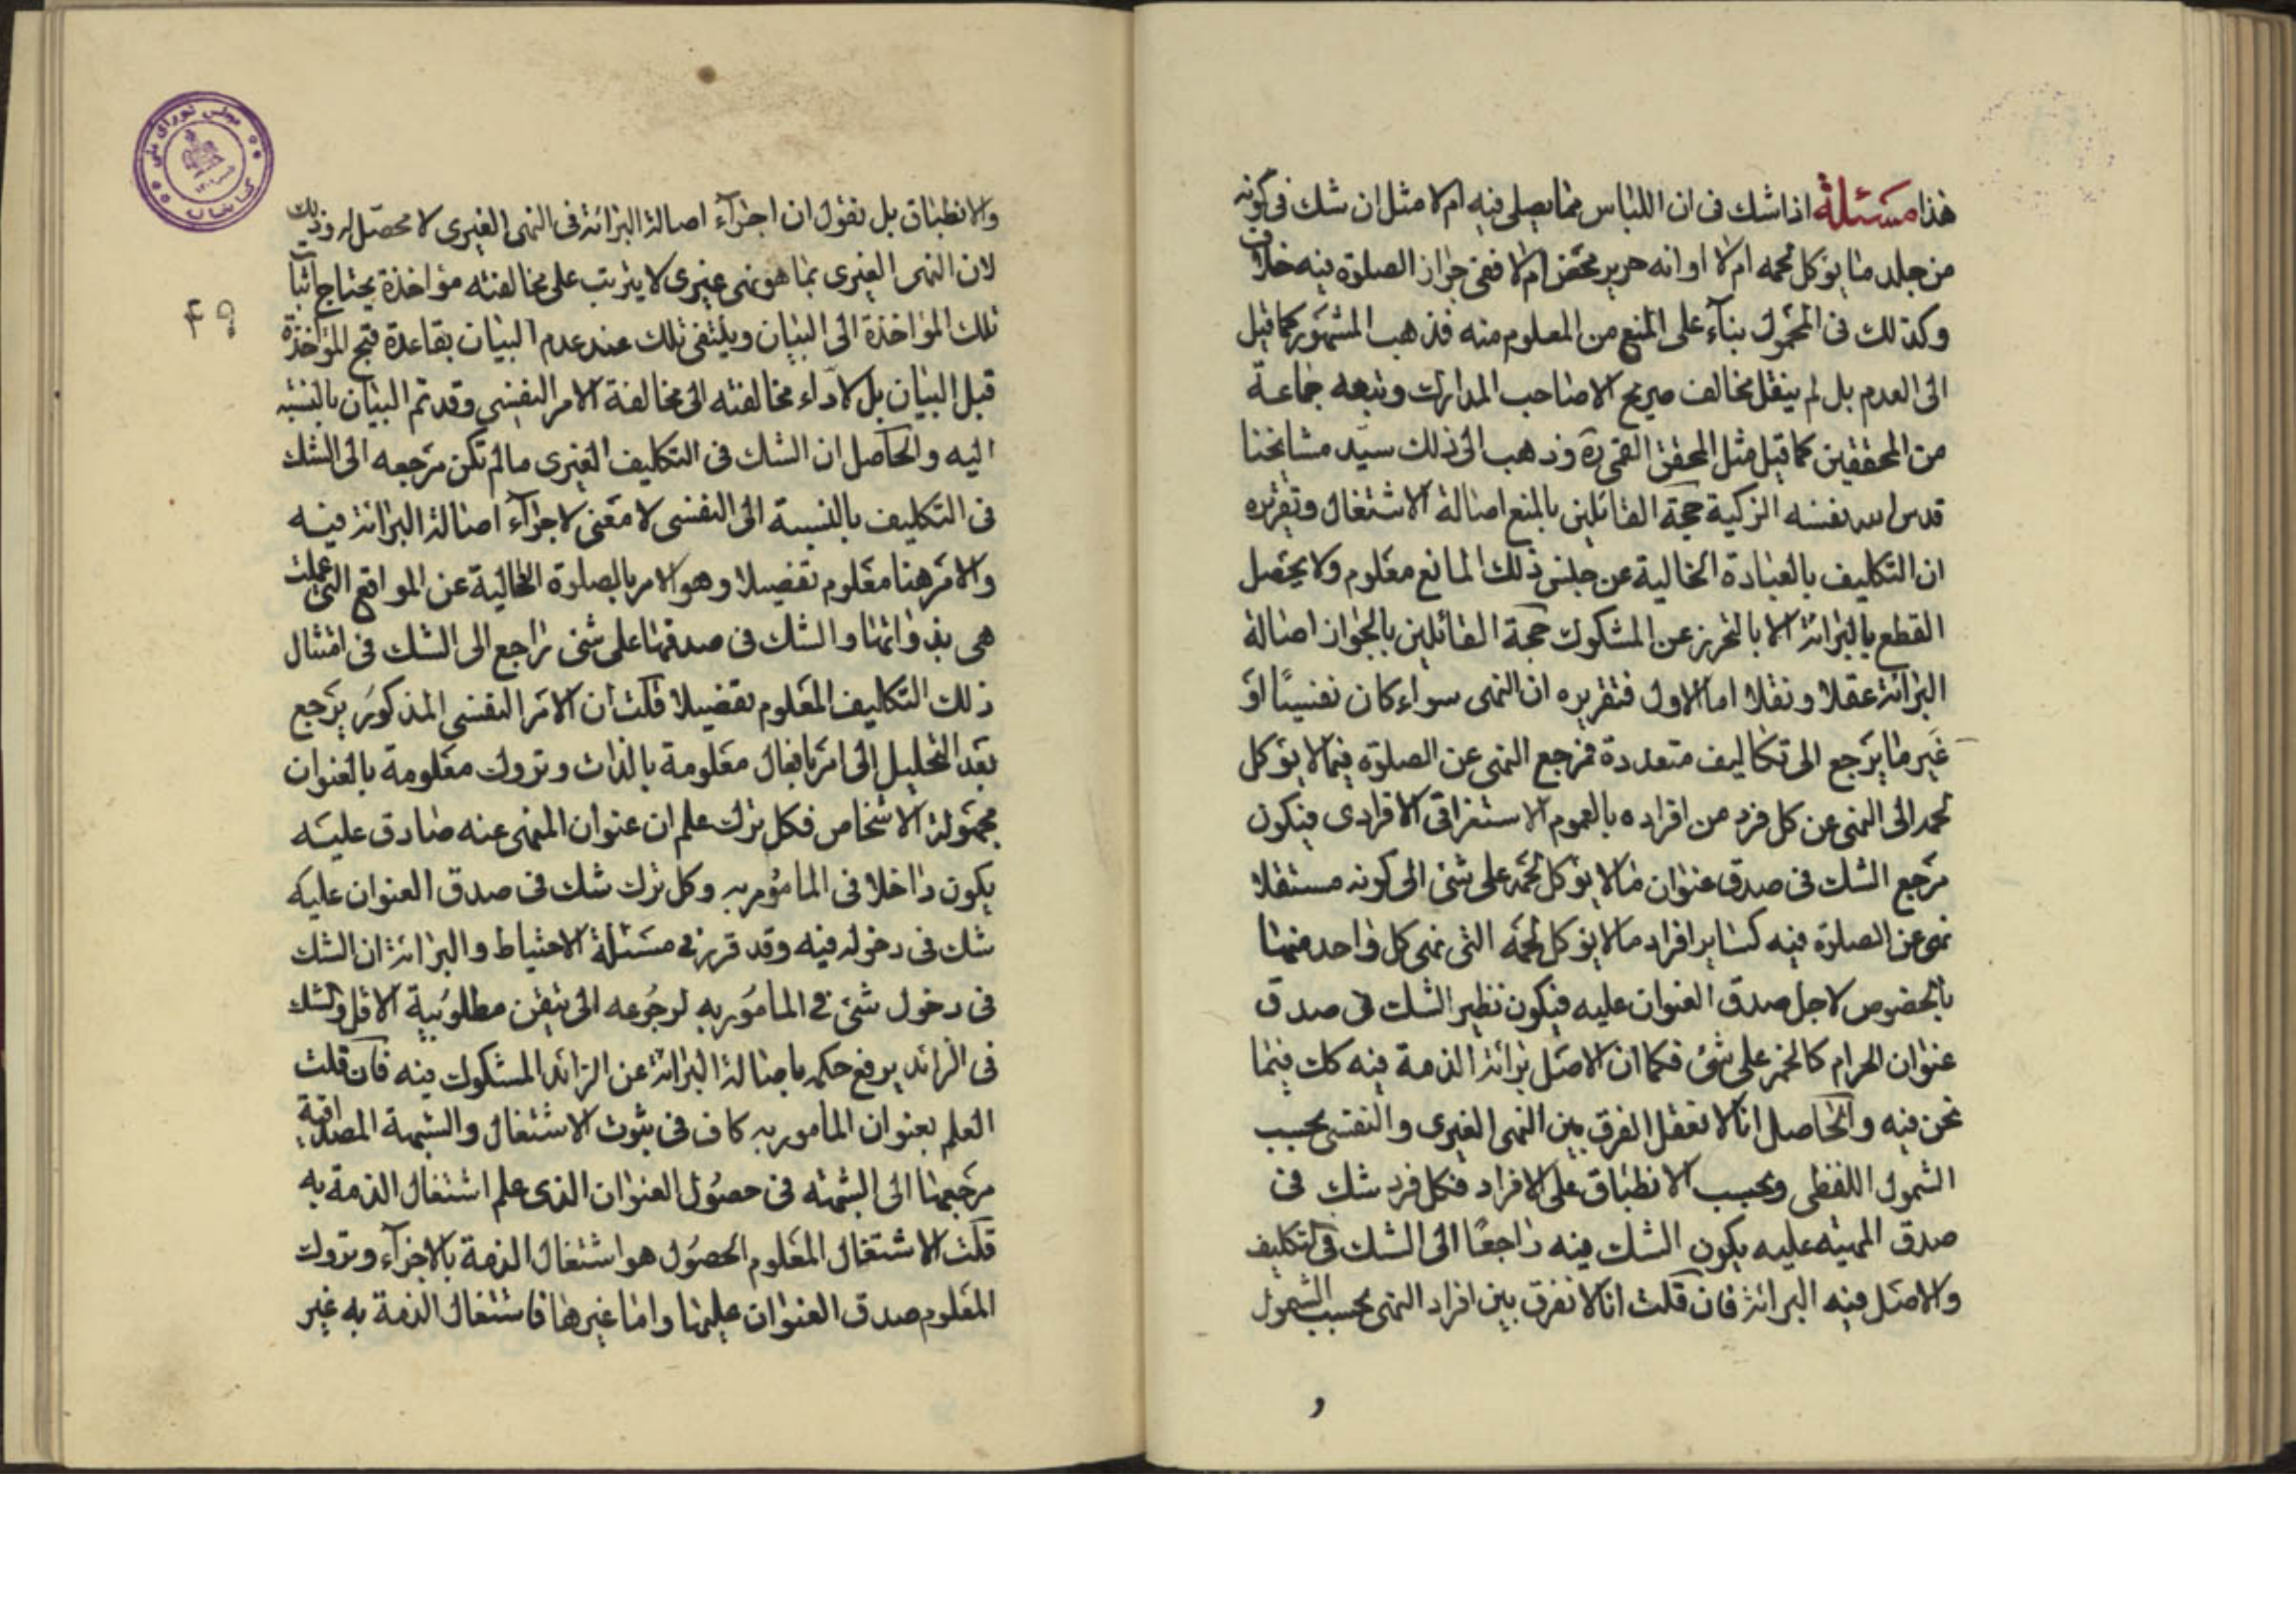 هذا مسئلة اذا شك فى ان اللباس مما يصلى فيه ام لا مثل ان شك فى كونه
من جلد ما يؤكل لحمه ام لا او انه حرير محض ام لا ففى جواز الصلوة فيه خلاف
وكذلك فى المحمول بناء على المنع من المعلوم منه فذهب المشهور كما قيل
الى العدم بل لم ينقل مخالف صريح الا صاحب المدارك وتبعه جماعة
من المحققين كما قيل مثل المحقق القمى ره وذهب الى ذلك سيد مشايخنا
قدس الله نفسه الزكية حجة القائلين بالمنع اصالة الاشتغال وتقريره
ان التكليف بالعبادة الخالية عن جنس ذلك المانع معلوم ولا يحصل
القطع بالبرائة الا بالتحرز عن المشكوك حجة القائلين بالجواز اصالة
البرائة عقلا ونقلا اما الاول فتقريره ان النهى سواء كان نفسيًا او
غيريا يرجع الى تكاليف متعددة فمرجع النهى عن الصلوة فيما لا يؤكل
لحمه الى النهى عن كل فرد من افراده بالعموم الاستغراقى الافرادى فيكون
مرجع الشك فى صدق عنوان ما لا يؤكل لحمه على شئ الى كونه مستقلا
نهى عن الصلوة فيه كساير افراد ما لا يؤكل لحمه التى نهى كل واحد منها
بالخصوص لاجل صدق العنوان عليه فيكون نظير الشك فى صدق
عنوان الحرام كالخمر على شئ فكما ان الاصل برائة الذمة فيه كك فيما
نحن فيه والحاصل انا لا نعقل الفرق بين النهى الغيرى والنفسى بحسب
الشمول اللفظى وبحسب الانطباق على الافراد فكل فرد شك فى
صدق المهيه عليه يكون الشك فيه راجعًا الى الشك فى التكليف
والاصل فيه البرائة فان قلت انا لا نفرق بين افراد النهى بحسب الشمول
و
والانطباق بل نقول ان اجراء اصالة البرائة فى النهى الغيرى لا محصّل له وذلك
لان النهى الغيرى بما هو نهى غيرى لا يترتب على مخالفته مؤاخذة يحتاج اثبات
تلك المؤاخذة الى البيان وينتفى تلك عند عدم البيان بقاعدة قبح المؤاخذة
قبل البيان بل لاداء مخالفته الى مخالفة الامر النفسى وقد تم البيان بالنسبة
اليه والحاصل ان الشك فى التكليف الغيرى ما لم تكن مرجعه الى الشك
فى التكليف بالنسبة الى النفسى لا معنى لاجراء اصالة البرائة فيه
والامر هنا معلوم تفصيلا وهو الامر بالصلوة الخالية عن الموانع التى علمت
هى بذواتها والشك فى صدقها على شئ راجع الى الشك فى امتثال
ذلك التكليف المعلوم تفصيلا قلت ان الامر النفسى المذكور يرجع
بعد التحليل الى امر بافعال معلومة بالذات وتروك معلومة بالعنوان
مجهولة الاشخاص فكل ترك علم ان عنوان المنهى عنه صادق عليه
يكون داخلا فى المامور به وكل ترك شك فى صدق العنوان عليه
شك فى دخوله فيه وقد قرر فى مسئلة الاحتياط والبرائة ان الشك
فى دخول شئ فى المامور به لرجوعه الى تيقن مطلوبية الاقل والشك
فى الزائد يرفع حكمه باصالة البرائة عن الزائد المشكوك فيه فان قلت
العلم بعنوان المامور به كاف فى ثبوت الاشتغال والشبهة المصداقية
مرجعها الى الشبهة فى حصول العنوان الذى علم اشتغال الذمة به
قلت الاشتغال المعلوم الحصول هو اشتغال الذمة بالاجزاء وتروك
المعلوم صدق العنوان عليها واما غيرها فاشتغال الذمة به غير
مجلس شوراى ملى